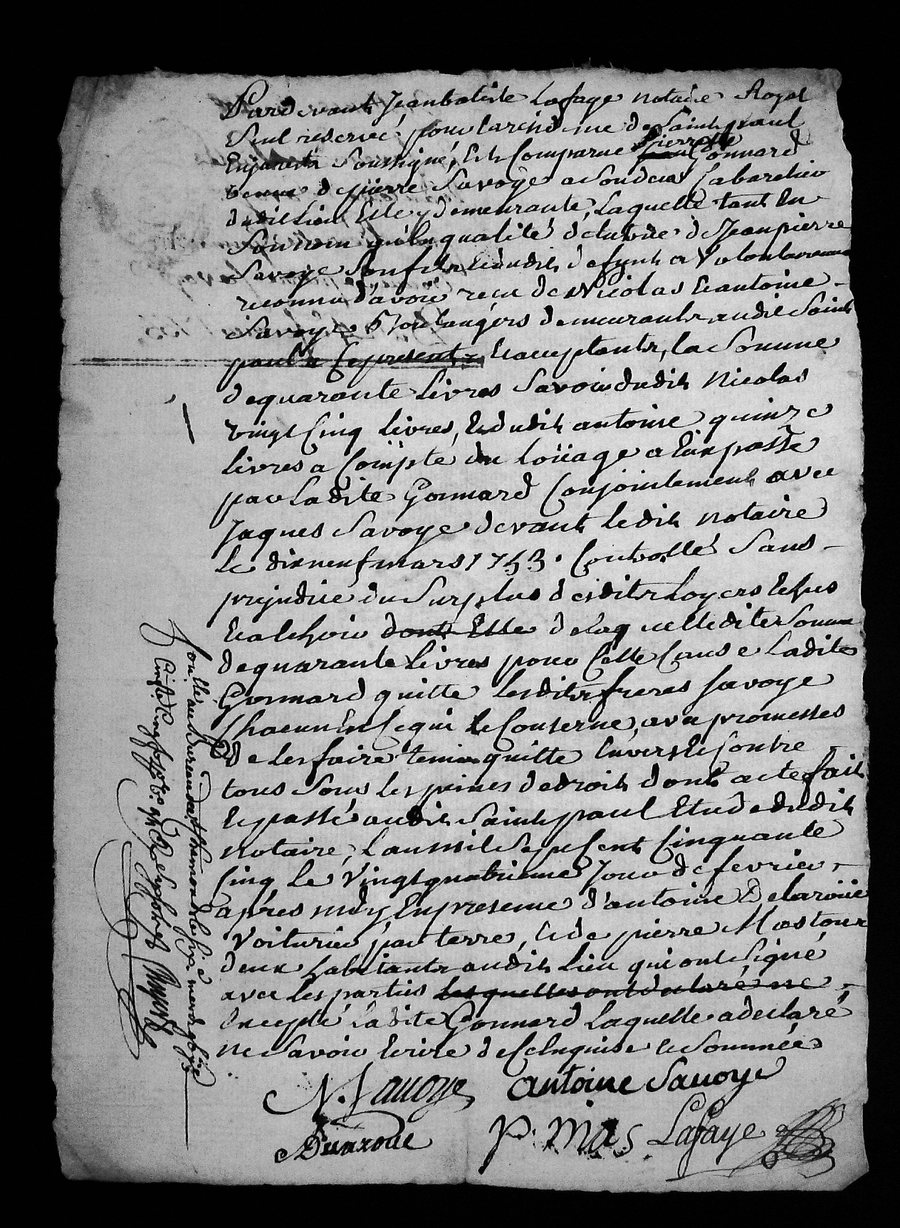 Pardevant Jeanbatiste Lafaye notaire Royal
Seul reservé pour la residence de Saint paul
Enjarest Soussigné, Est Comparue pierrette Gonnard
veuve de pierre Savoye a Son deces Cabaretier
dudit Lieu Et elle y demeurante, Laquelle tant En
Son nom qu'En qualité de tutrice de Jean pierre
Savoye Son fils Et dudit defunt a Volontairement
reconnu d'avoir recu de Nicolas Et antoine
Savoye Boulangers demeurants audit Saint
paul cy represents Et acceptants, La Somme
de quarante Livres Savoir dudit Nicolas
vingt Cinq livres, Et dudit antoine quinze
Livres a Compte du loüage a Eux passé
par Ladite Gonnard Conjointement avec
Jaques Savoye devant ledit notaire
Le dix neuf mars 1753. Controllé Sans
prejudice du Surplus desdits Loyers Echus
Et a Echoir dont Elle de Laquelle dite Somme
de quarante Livres pour Cette Cause Ladite
Gonnard quitte Lesdits freres Savoye
Chacun En Ce qui Le Conserne, avec promesses
de Les faire tenir quitte Envers Et Contre
tous Sous Les peines de droit dont acte fait
Et passé audit Saint paul Etude dudit
notaire, L'an mil Sept Cent Cinquante
Cinq Le Vingt quatrieme Jour de fevrier
apres midy En presence d'antoine Delaroüe
Voiturier par terre, Et de pierre Mas tous
deux habitants audit Lieu qui ont Signé
avec Les parties lesquelles ont declaré ne
Excepté Ladite Gonnard Laquelle a declaré
ne Savoir Ecrire de Ce Enquise Et Sommée
N. Savoye antoine Savoye
Delaroue P. Mas Lafaye
Controllé au Bureau de